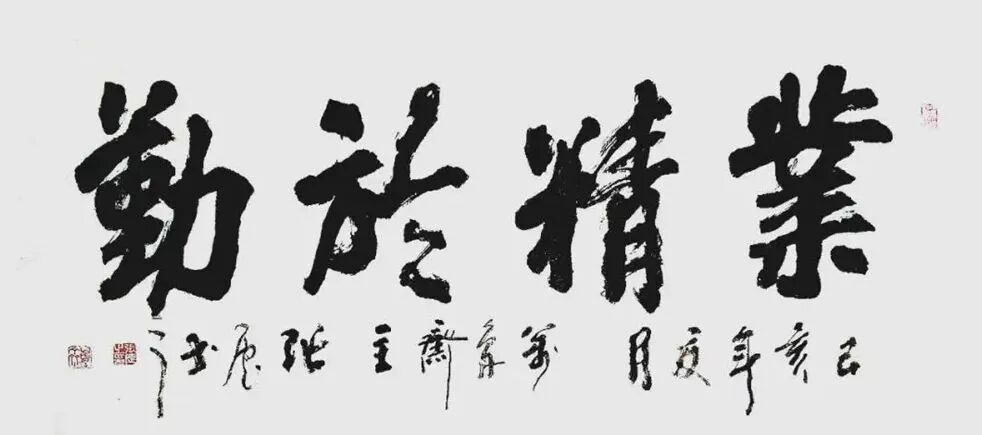 業精於勤
己亥年夏月 齋主 張 书